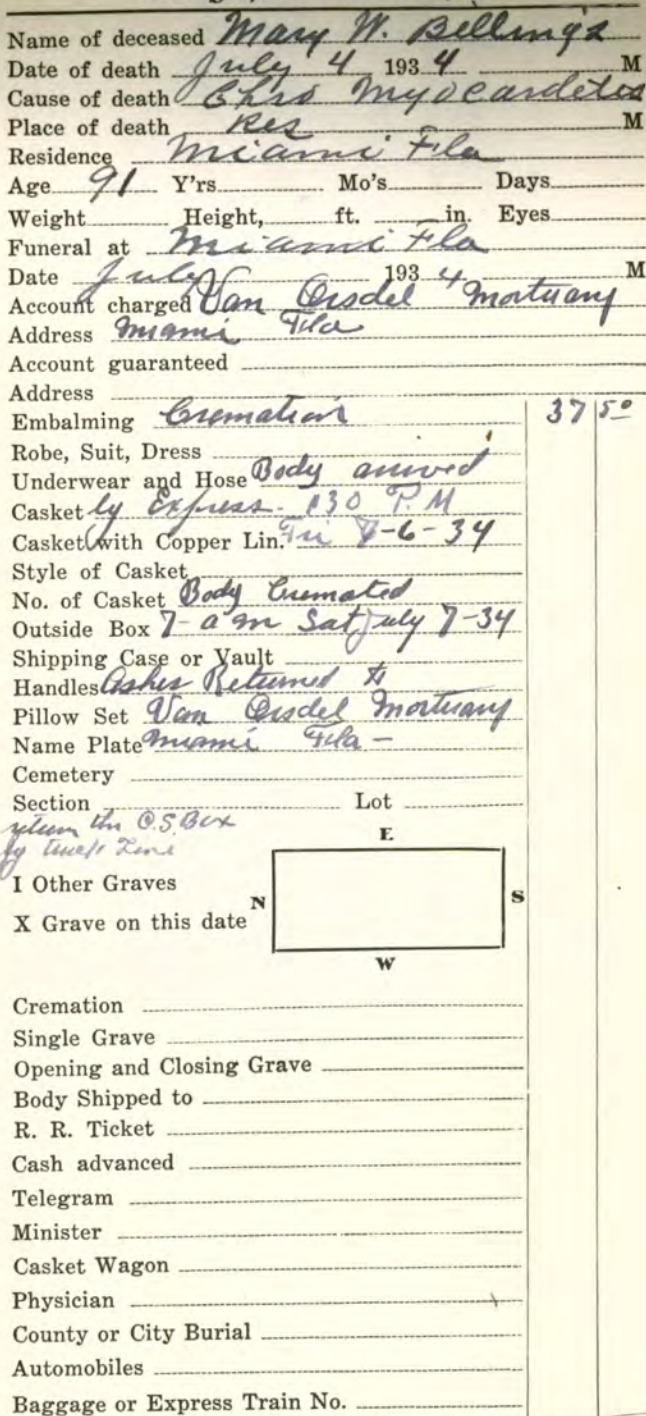 Name of deceased Mary W. Billings
Date of death July 4 1934 M
Cause of death Chro Myocarditis
Place of death Res M
Residence Miami Fla
Age 91 Y'rs Mo's Days
Weight Height, ft. in. Eyes
Funeral at Miami Fla
Date July 1934 M
Account charged Van Orsdel Mortuary
Address Miami Fla
Account guaranteed
Address
Embalming Cremation 37 50
Robe, Suit, Dress
Underwear and Hose Body arrived
Casket by Express 130 P.M
Casket with Copper Lin. Fri 7-6-34
Style of Casket
No. of Casket Body Cremated
Outside Box 7- a m Sat July 7-34
Shipping Case or Vault
Handles Ashes Returned to
Pillow Set Van Orsdel Mortuary
Name Plate Miami Fla -
Cemetery
Section Lot
return the O.S. Box
by Truck Line
E
I Other Graves
N S
X Grave on this date
W
Cremation
Single Grave
Opening and Closing Grave
Body Shipped to
R. R. Ticket
Cash advanced
Telegram
Minister
Casket Wagon
Physician
County or City Burial
Automobiles
Baggage or Express Train No.